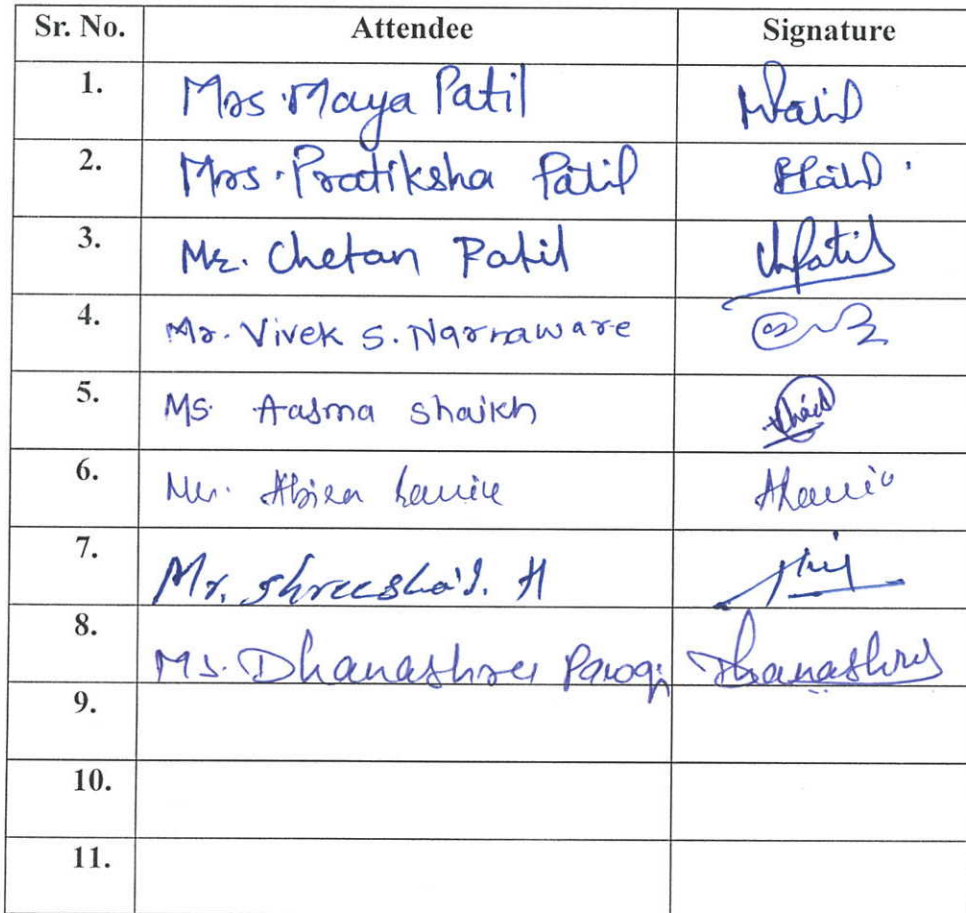 Sr. No. Attendee Signature
1. Mrs. Maya Patil MPatil
2. Mrs. Pratiksha Patil PPatil
3. Mr. Chetan Patil Chpatil
4. Mr. Vivek S. Narnaware
5. Ms. Aasma shaikh
6. Abira
7. Mr. Shreesha S. H
8. Ms. Dhanashree Dhanashree
9.
10.
11.